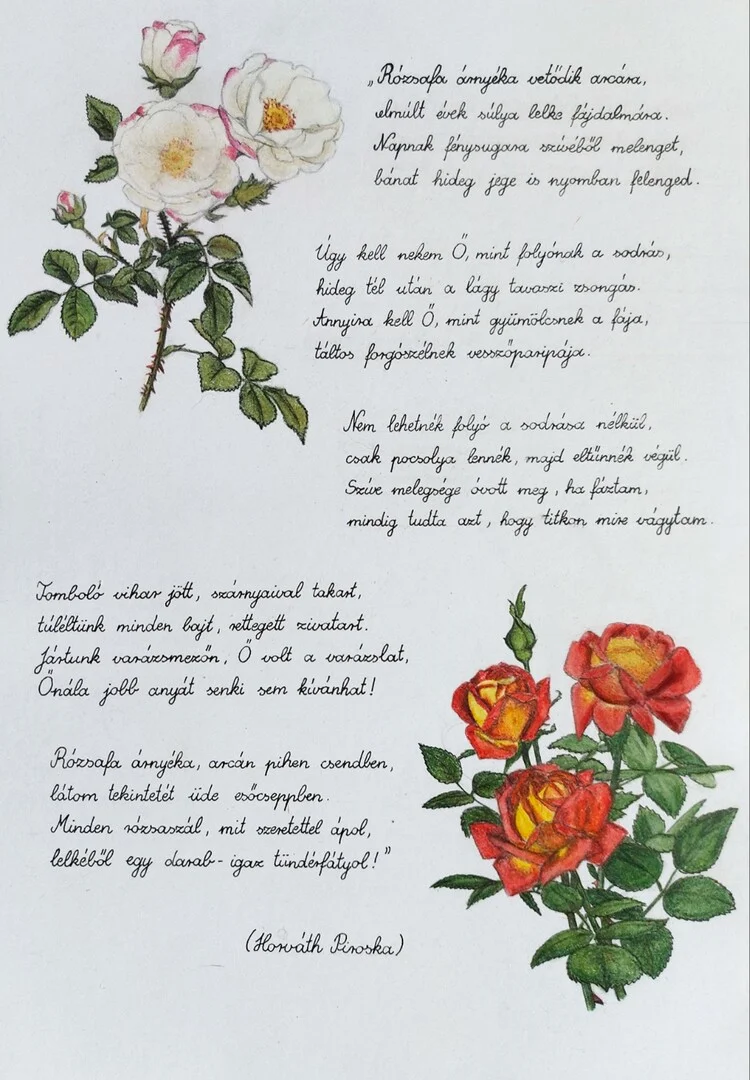 „Rózsafa árnyéka vetődik arcára,
elmúlt évek súlya lelke fájdalmára.
Napnak fénysugara szívéből melenget,
bánat hideg jege is nyomban felenged.
Úgy kell nekem Ő, mint folyónak a sodrás,
hideg tél után a lágy tavaszi zsongás.
Annyira kell Ő, mint gyümölcsnek a fája,
táltos forgószélnek vesszőparipája.
Nem lehetnék folyó a sodrása nélkül,
csak pocsolya lennék, majd eltűnnék végül.
Szíve melegsége óvott meg, ha fáztam,
mindig tudta azt, hogy titkon mire vágytam.
Tomboló vihar jött, szárnyaival takart,
túléltünk minden bajt, rettegett zivatart.
Jártunk varázsmezőn, Ő volt a varázslat,
Őnála jobb anyát senki sem kívánhat!
Rózsafa árnyéka, arcán pihen csendben,
látom tekintetét üde esőcseppben.
Minden rózsaszál, mit szeretettel ápol,
lelkéből egy darab - igaz tündérfátyol!”
(Horváth Piroska)